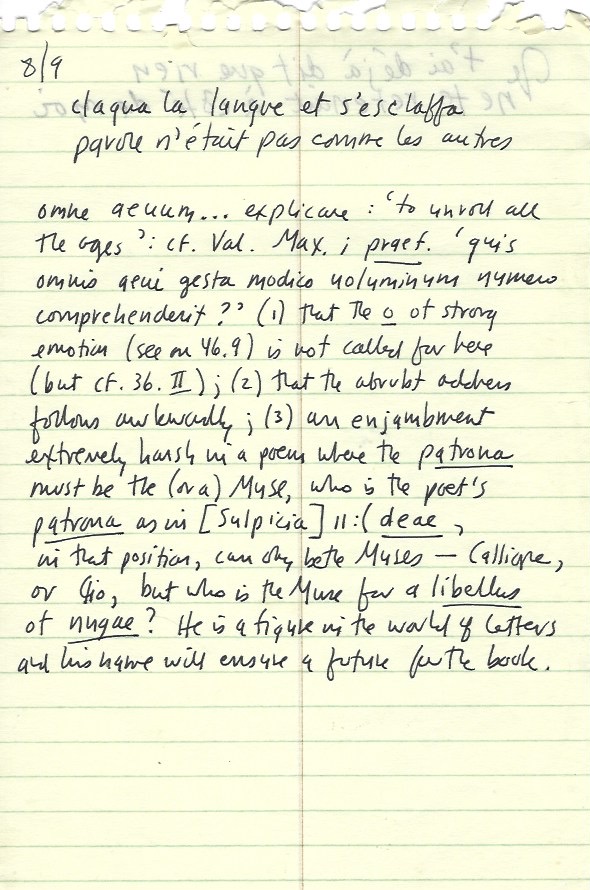 8/9
claqua la langue et s'esclaffa
parole n'était pas comme les autres
omne aeuum... explicare : 'to unroll all
the ages': cf. Val. Max. ; praef. 'quis
omnis aeui gesta modico uoluminum numero
comprehenderit ?' (1) that the o of strong
emotion (see on 46.9) is not called for here
(but cf. 36. II) ; (2) that the abrubt address
follows awkwardly ; (3) an enjambment
extremely harsh in a poem where the patrona
must be the (or a) Muse, who is the poet's
patrona as in [Sulpicia] 11:( deae ,
in that position, can only be the Muses — Calliope,
or Clio, but who is the Muse for a libellus
of nugae? He is a figure in the world of letters
and his name will ensure a future for the book.